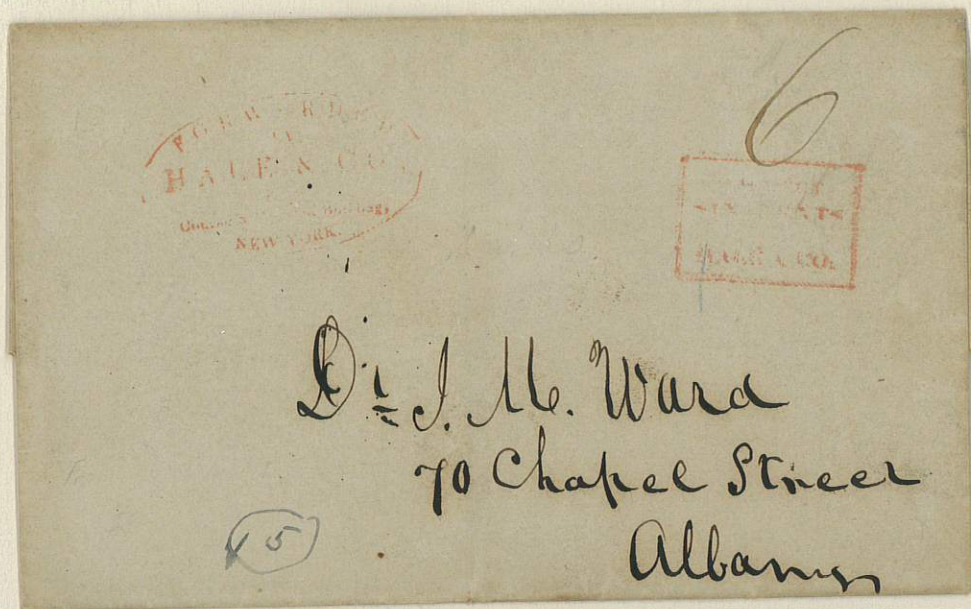 HALE & CO.
NEW YORK.
6
SIX CENTS
HALE & CO.
Dr. J. M. Ward
70 Chapel Street
Albany
15